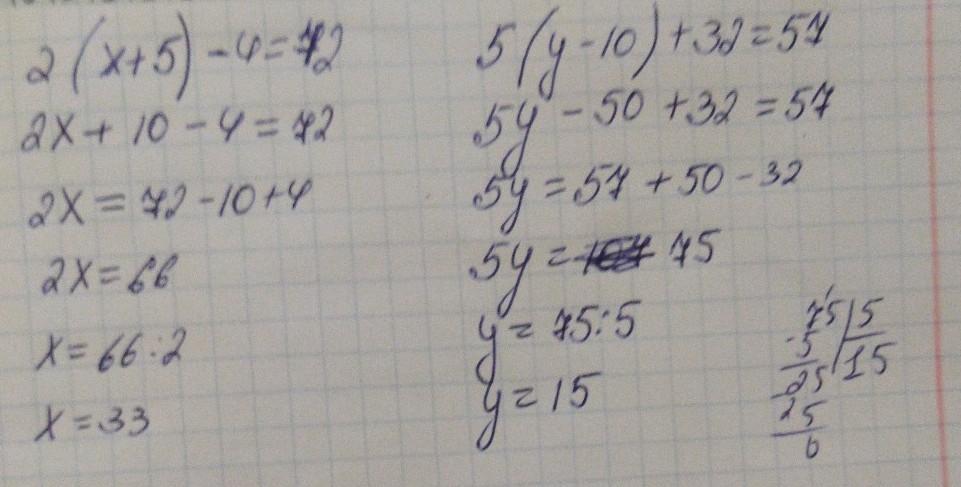 2(x+5)-4=72
2x+10-4=72
2x=72-10+4
2x=66
x=66:2
x=33
5(y-10)+32=57
5y-50+32=57
5y=57+50-32
5y=75
y=75:5
y=15
75|5
-5|15
25
25
0